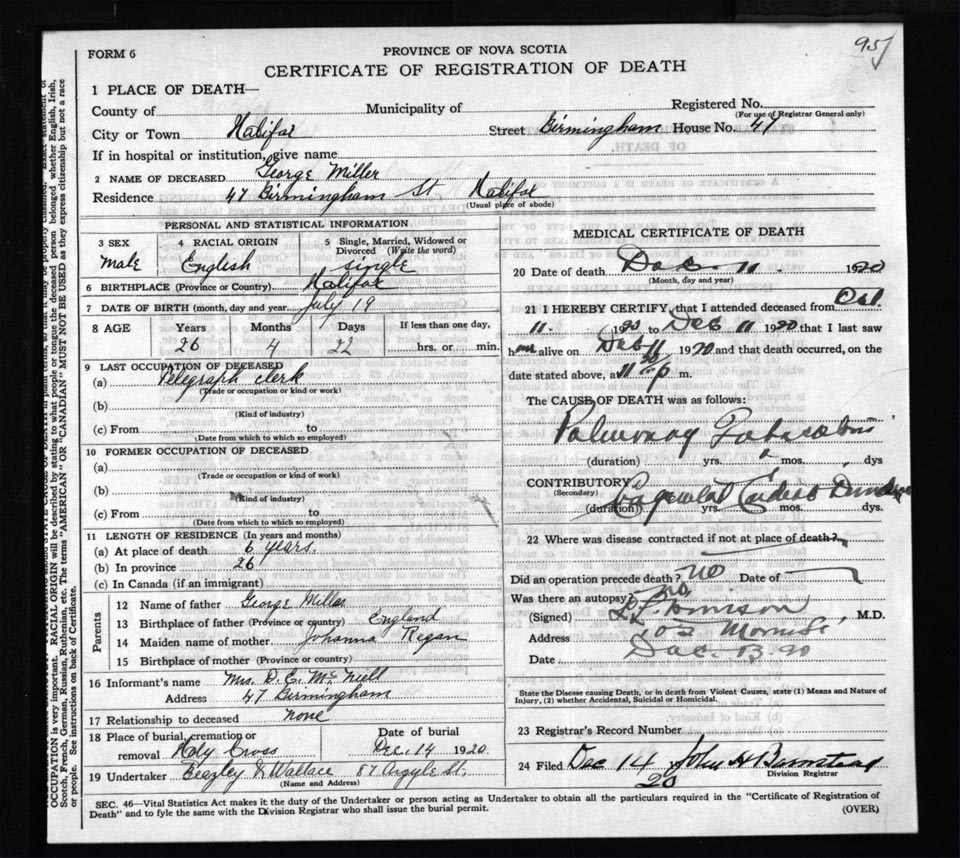 957
FORM 6
PROVINCE OF NOVA SCOTIA
CERTIFICATE OF REGISTRATION OF DEATH
1 PLACE OF DEATH—
County of Municipality of Registered No.
(For use of Registrar General only)
City or Town Halifax Street Birmingham House No. 47
If in hospital or institution, give name
2 NAME OF DECEASED George Miller
Residence 47 Birmingham St. Halifax
(Usual place of abode)
PERSONAL AND STATISTICAL INFORMATION
3 SEX 4 RACIAL ORIGIN 5 Single, Married, Widowed or Divorced (Write the word)
Male English single
6 BIRTHPLACE (Province or Country) Halifax
7 DATE OF BIRTH (month, day and year) July 19
8 AGE Years Months Days If less than one day,
26 4 22 hrs. or min.
9 LAST OCCUPATION OF DECEASED
(a) Telegraph clerk
(Trade or occupation or kind of work)
(b)
(Kind of industry)
(c) From to
(Date from which to which so employed)
10 FORMER OCCUPATION OF DECEASED
(a)
(Trade or occupation or kind of work)
(b)
(Kind of industry)
(c) From to
(Date from which to which so employed)
11 LENGTH OF RESIDENCE (In years and months)
(a) At place of death 6 years.
(b) In province 26
(c) In Canada (if an immigrant)
Parents
12 Name of father George Miller
13 Birthplace of father (Province or country) England
14 Maiden name of mother Johanna Regan
15 Birthplace of mother (Province or country)
16 Informant's name Mrs. D. E. McNeill
Address 47 Birmingham
17 Relationship to deceased none
18 Place of burial, cremation or removal Holy Cross Date of burial Dec. 14 1920
19 Undertaker Beazley & Wallace 87 Argyle St.
(Name and Address)
MEDICAL CERTIFICATE OF DEATH
20 Date of death Dec. 11. 1920
(Month, day and year)
21 I HEREBY CERTIFY that I attended deceased from Oct.
11. 1920 to Dec 11 1920 that I last saw
h alive on Dec 11 1920 and that death occurred, on the
date stated above, at 11 p m.
The CAUSE OF DEATH was as follows:
Pulmonary Tuberculosis
(duration) yrs. mos. dys
CONTRIBUTORY
(Secondary) Cardiac
(duration) yrs. mos. dys.
22 Where was disease contracted if not at place of death?
Did an operation precede death? no Date of
Was there an autopsy? no
(Signed) M.D.
Address Morris St.
Date Dec. 13. 20
State the Disease causing Death, or in death from Violent Causes, state (1) Means and Nature of
Injury, (2) whether Accidental, Suicidal or Homicidal.
23 Registrar's Record Number
24 Filed Dec 14 20 John H Barnstead
Division Registrar
SEC. 46—Vital Statistics Act makes it the duty of the Undertaker or person acting as Undertaker to obtain all the particulars required in the "Certificate of Registration of
Death" and to fyle the same with the Division Registrar who shall issue the burial permit. (OVER)
OCCUPATION is very important. RACIAL ORIGIN will be described by stating to what people or tongue the deceased person belonged whether English, Irish,
Scotch, French, German, Russian, Ruthenian, etc. The terms "AMERICAN" OR "CANADIAN" MUST NOT BE USED as they express citizenship but not a race
or people. See instructions on back of Certificate.